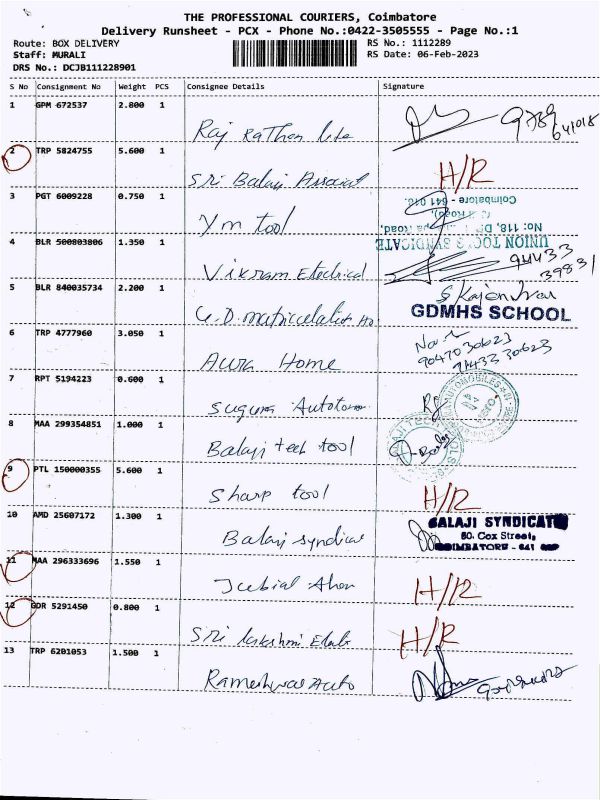 THE PROFESSIONAL COURIERS, Coimbatore
Delivery Runsheet - PCX - Phone No.:0422-3505555 - Page No.:1
Route: BOX DELIVERY RS No.: 1112289
Staff: MURALI RS Date: 06-Feb-2023
DRS No.: DCJB111228901
S No Consignment No Weight PCS Consignee Details Signature
1 GPM 672537 2.800 1
Raj Rathon
2 TRP 5824755 5.600 1 H/R
Sri Balaji
3 PGT 6009228 0.750 1
Coimbatore - 641 018.
Ym tool
No: 118,
UNION TOOLS SYNDICATE
4 BLR 500803806 1.350 1
94433
39831
Vikram Electrical
5 BLR 840035734 2.200 1
GDMHS SCHOOL
G.D. matriculation
6 TRP 4777960 3.050 1
9047030623
Aura Home
7 RPT 5194223 0.600 1
AUTOMOBILES
Suguna
8 MAA 299354851 1.000 1
Balaji tech tool
9 PTL 150000355 5.600 1 H/R
Sharp tool
10 AMD 25607172 1.300 1
BALAJI SYNDICATE
60, Cox Street,
COIMBATORE - 641
Balaji Syndicate
11 MAA 296333696 1.550 1 H/R
12 GOR 5291450 0.800 1 H/R
Sri Lakshmi
13 TRP 6201053 1.500 1
Rameshwar Auto